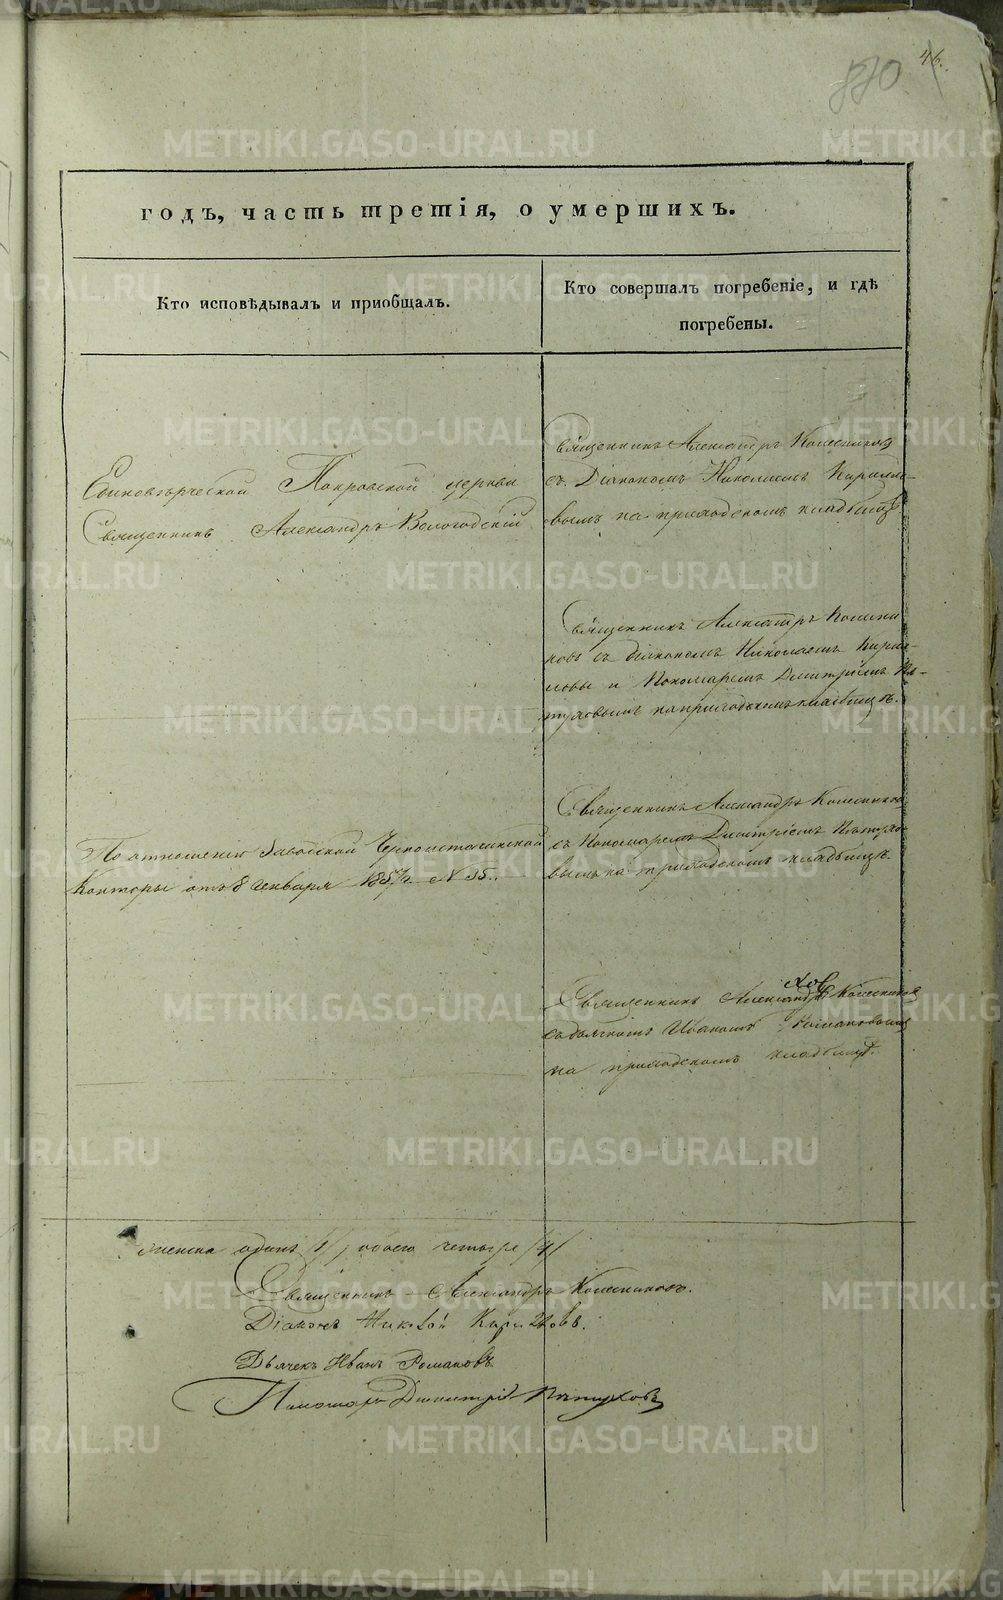 46.
870
годъ, часть третія, о умершихъ.
Кто исповѣдывалъ и приобщалъ.
Кто совершалъ погребеніе, и гдѣ
погребены.
Единовѣрческой Покровской церкви
Священникъ Александръ Вологодскій
Священникъ Александръ Колесниковъ
съ Діакономъ Николаемъ Кирило-
вымъ на приходскомъ кладбищѣ
Священникъ Александръ Колесни
ковъ съ діакономъ Николаемъ Кири-
ловы и Пономаремъ Димитріемъ Пѣ-
туховымъ на приходскомъ кладбищѣ.
По отношенію Заводской Черноисточинской
Конторы отъ 8 Генваря № 35.
Священникъ Александръ Колесниковъ
съ Пономаремъ Димитріемъ Пѣтухо-
вымъ на приходскомъ кладбищѣ.
Священникъ Александръ Колесников
съ дьячкомъ Иваномъ Романовымъ
на приходскомъ кладбищѣ.
женска одинъ /1/, обоего четыре /4/
Священникъ Александръ Колесниковъ.
Діаконъ Николай Кириловъ.
Дьячекъ Иванъ Романовъ
Пономарь Димитрій Пѣтуховъ
METRIKI.GASO-URAL.RU